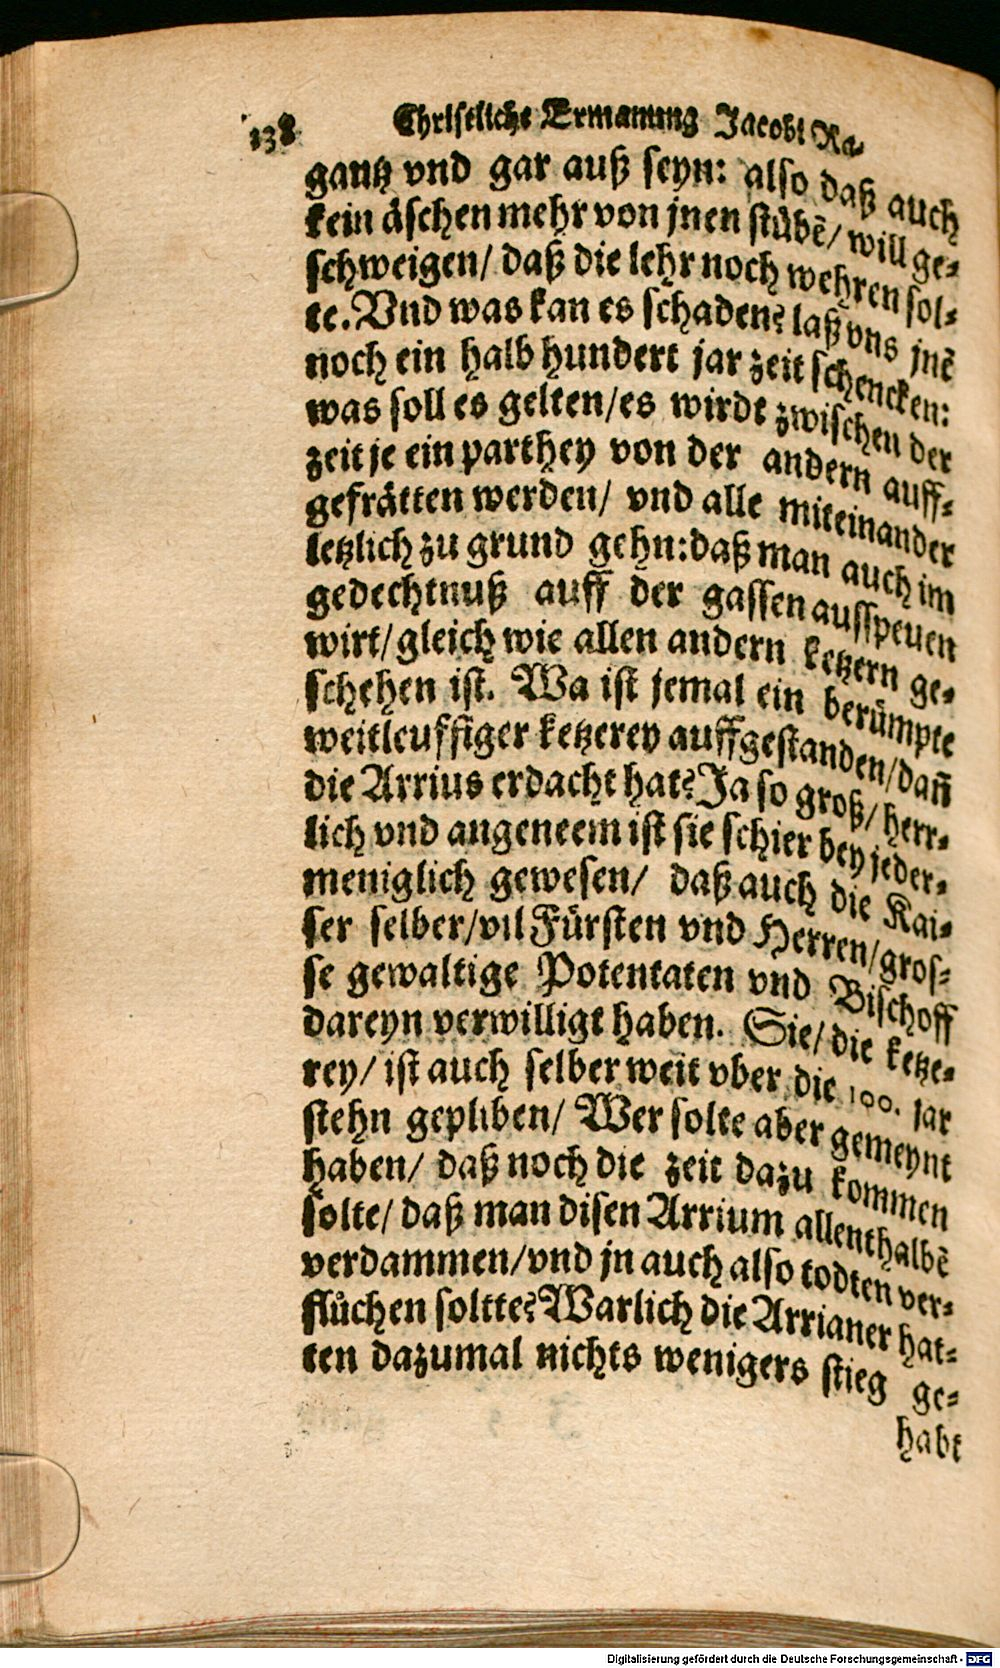 138 Christliche Ermanung Jacobi Ra-
gantz vnd gar auß seyn: also daß auch
kein äschen mehr von jnen stübẽ/ will ge-
schweigen/ daß die lehr noch wehren sol-
te. Vnd was kan es schaden? laß vns jnẽ
noch ein halb hundert jar zeit schencken:
was soll es gelten/es wirdt zwischen der
zeit je ein parthey von der andern auff-
gefrätten werden/ vnd alle miteinander
letzlich zu grund gehn:daß man auch im
gedechtnuß auff der gassen ausspeuen
wirt/gleich wie allen andern ketzern ge-
schehen ist. Wa ist jemal ein berümpte
weitleuffiger ketzerey auffgestanden/dañ
die Arrius erdacht hat? Ja so groß/ herr-
lich vnd angeneem ist sie schier bey jeder-
meniglich gewesen/ daß auch die Kai-
ser selber/vil Fürsten vnd Herren/gros-
se gewaltige Potentaten vnd Bischoff
dareyn verwilligt haben. Sie/ die ketze-
rey/ ist auch selber weit vber die 100. jar
stehn gepliben/ Wer solte aber gemeynt
haben/ daß noch die zeit dazu kommen
solte/ daß man disen Arrium allenthalbẽ
verdammen/vnd jn auch also todten ver-
flůchen soltte? Warlich die Arrianer hat-
ten dazumal nichts wenigers stieg ge-
habt
Digitalisierung gefördert durch die Deutsche Forschungsgemeinschaft - DFG